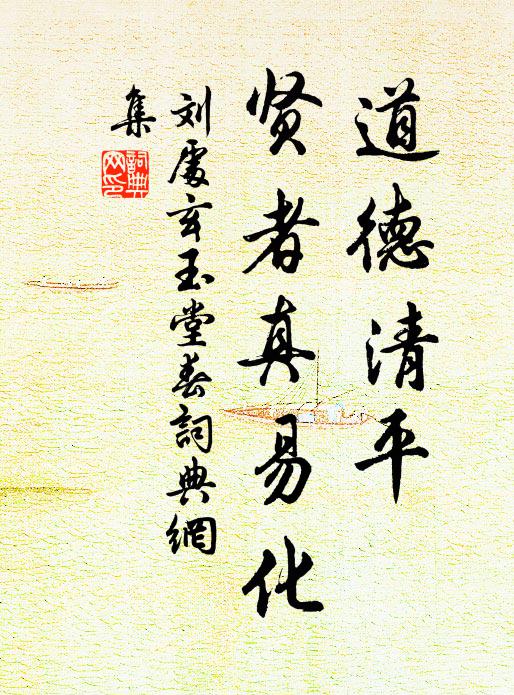 道德清平
贤者真易化
刘處玄玉堂春詞典網
集
詞典
网印